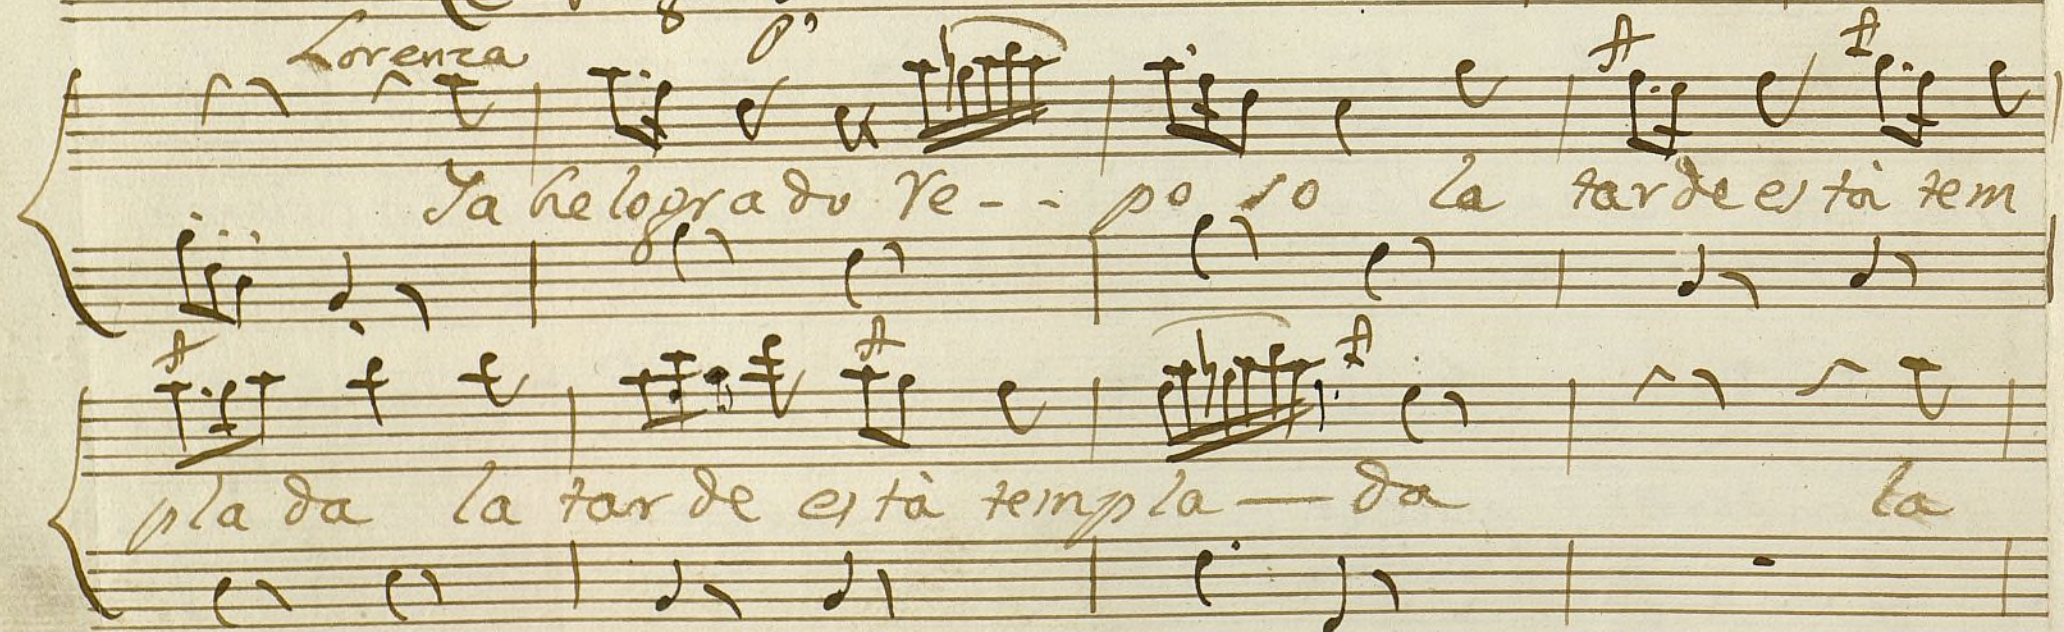 Lorenza po
Ya he logrado re - - po so la tarde està tem
pla da la tar de està templa — da la